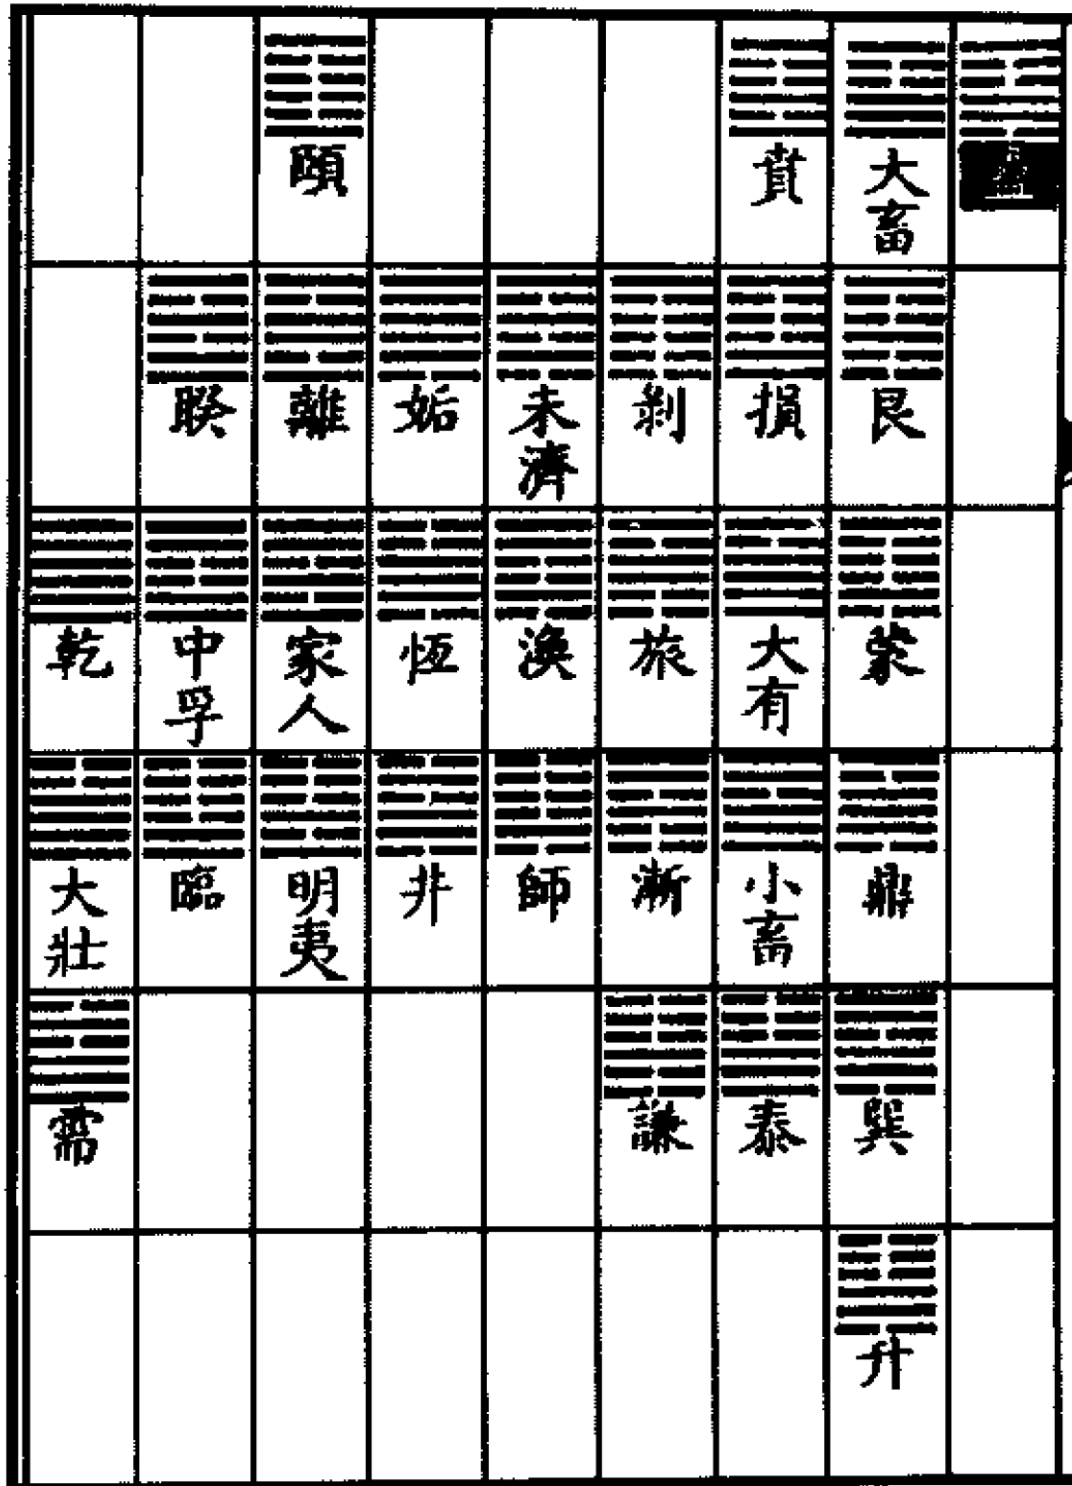 蠱
大畜
艮
蒙
鼎
巽
升
賁
損
大有
小畜
泰
剝
旅
漸
謙
未濟
渙
師
姤
恆
井
頤
離
家人
明夷
睽
中孚
臨
乾
大壯
需